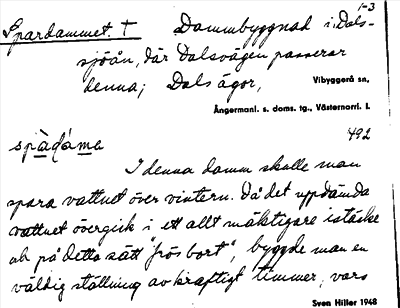 1-3
Spardammet. † Dammbyggnad i Dals-
sjöån, där Dalsvägen passerar
denna; Dals ägor, Vibyggerå sn,
Ångermanl. s. doms. tg., Västernorrl. l.
492
spàdáma
I denna damm skulle man
spara vattnet över vintern. Då det uppdämda
vattnet övergick i ett allt mäktigare istäcke
och på detta sätt "frös bort", byggde man en
väldig ställning av kraftigt timmer, vars
Sven Hiller 1948